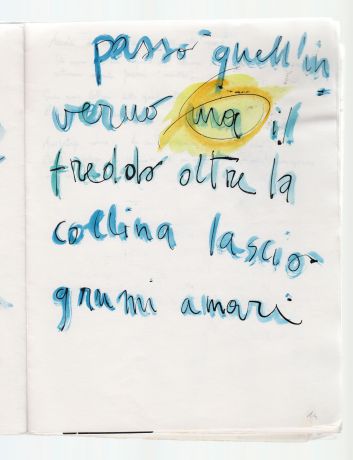 passò quell'in
verno ma il
freddo oltre la
collina lasciò
grumi amari